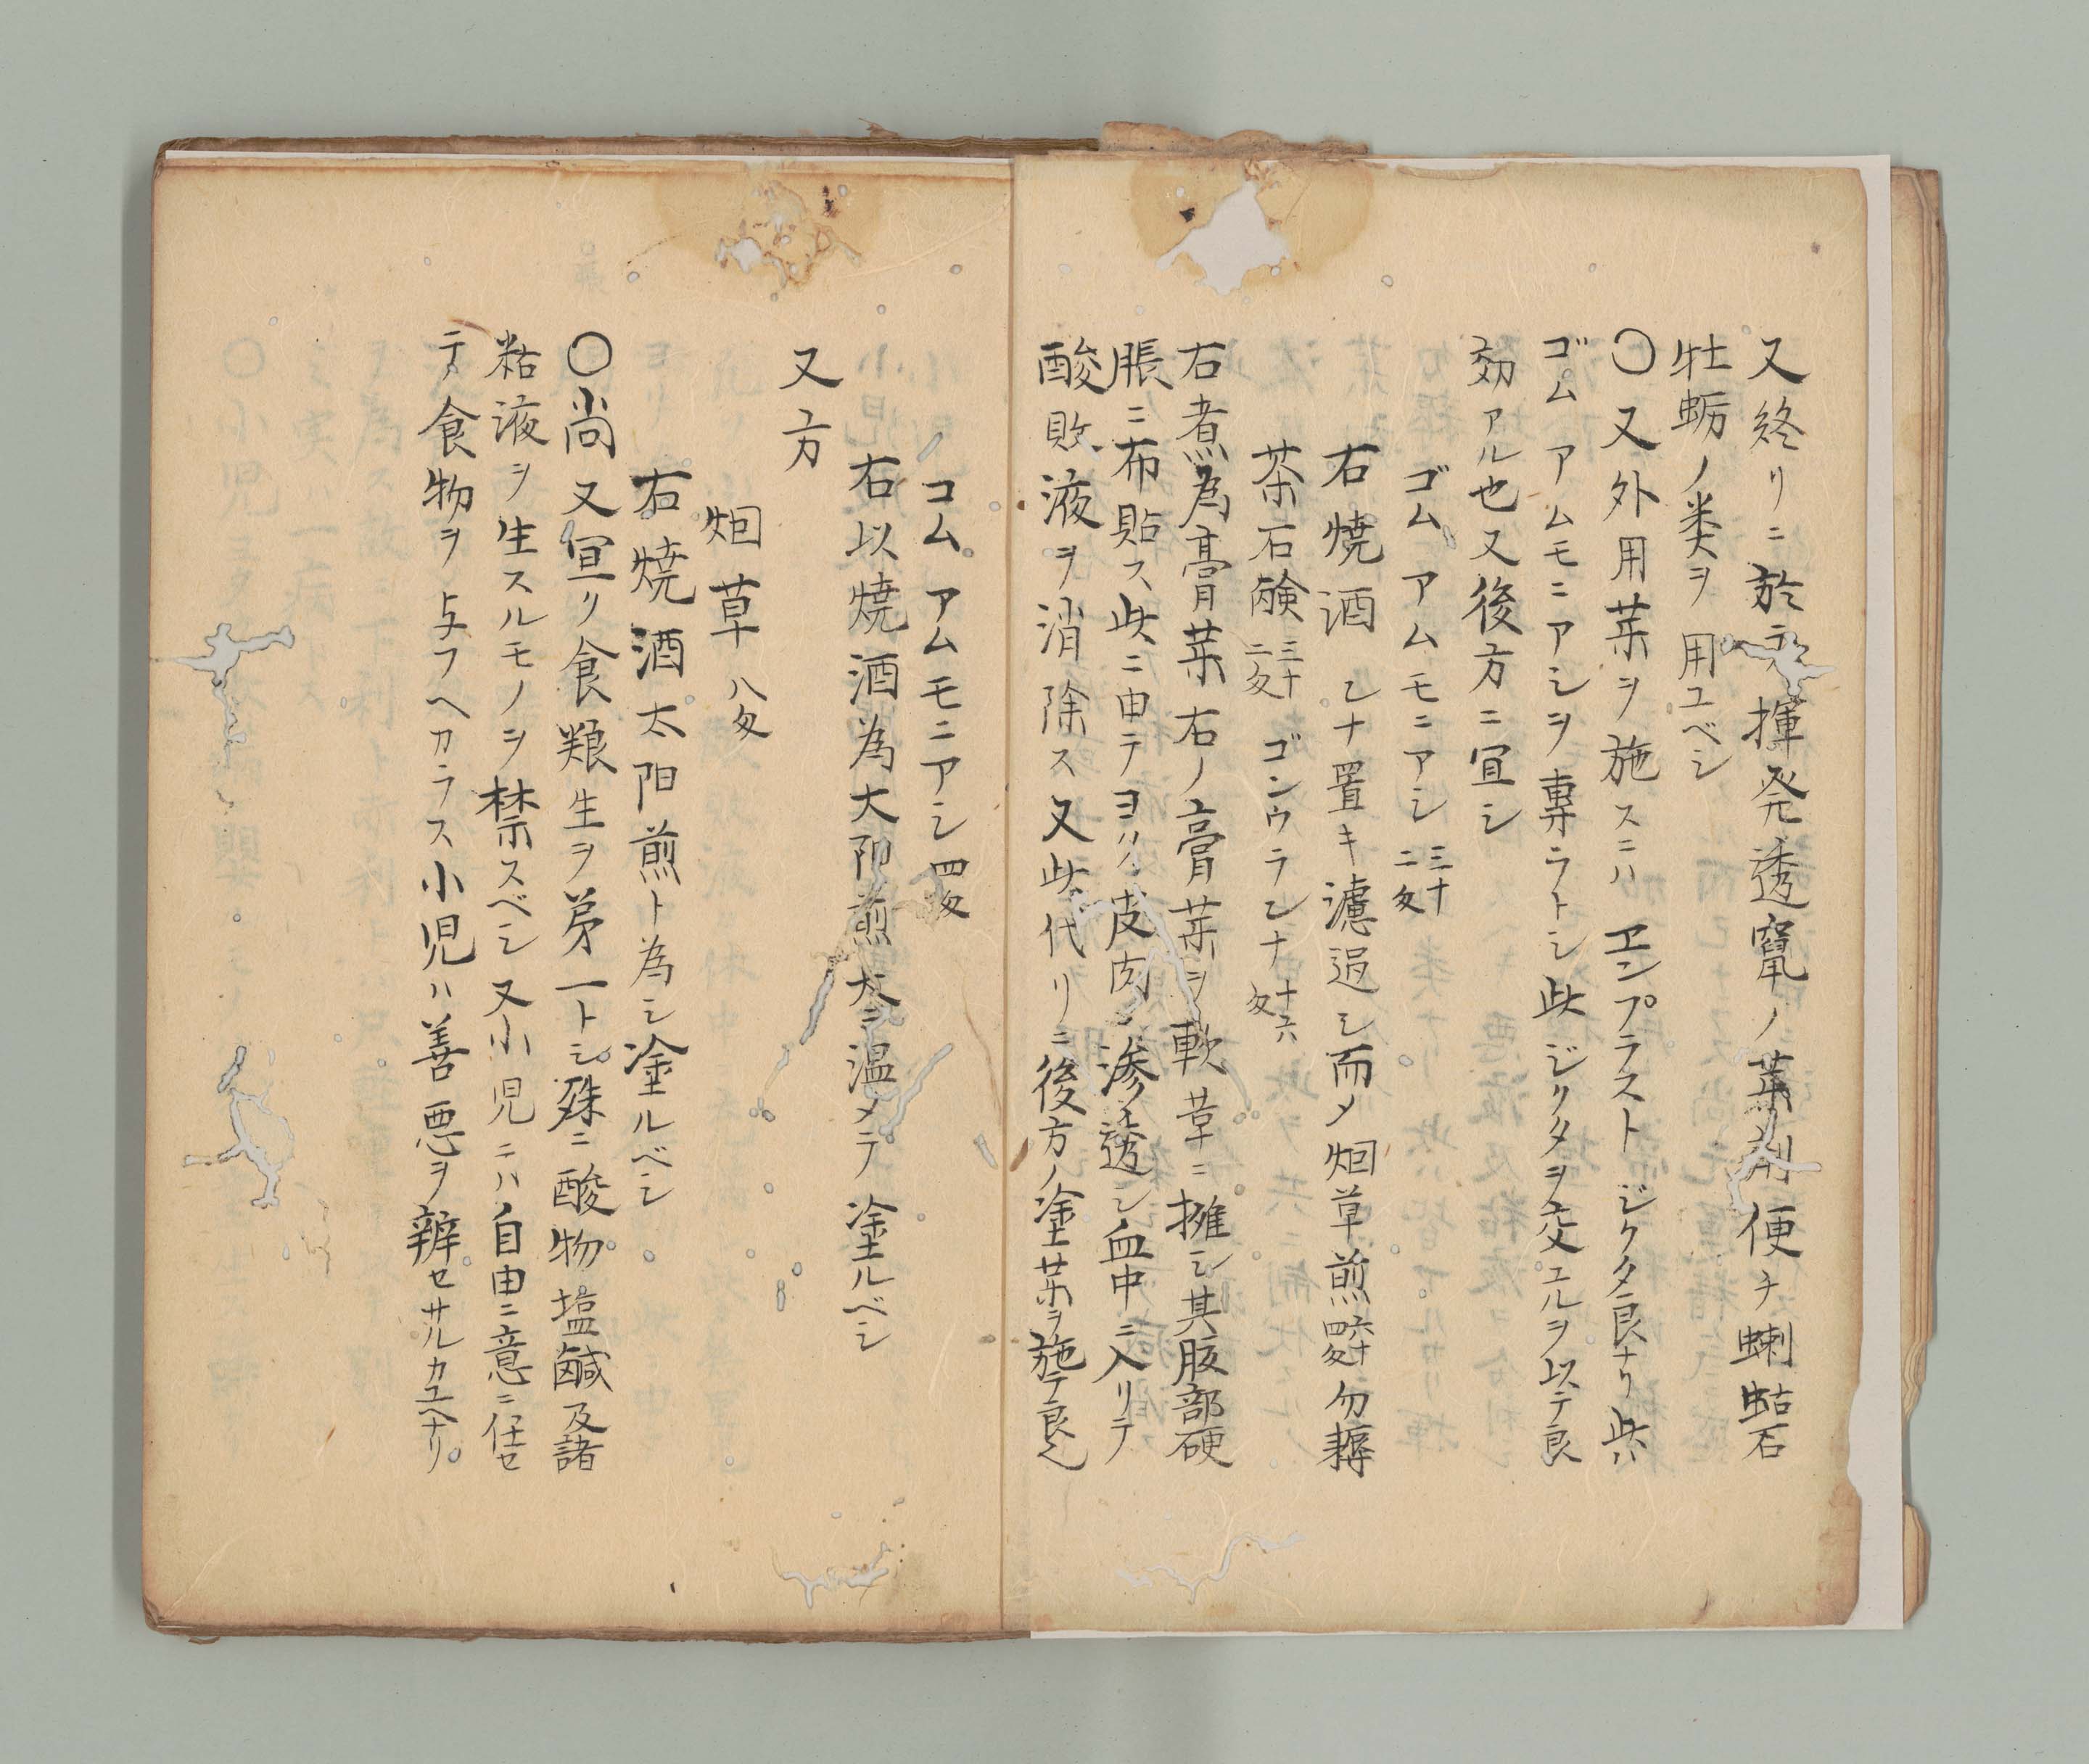 又終リニ於テ揮発透竄ノ薬剤便チ蜊蛄石
牡蛎ノ类ヲ用ユベシ
〇又外用薬ヲ施スニハヱンプラストジクタ良ナリ此ハ
ゴムアムモニアシヲ専ラトシ此ジリタヲ交エルヲ以テ良
効アル也又後方ニ宜シ
ゴムアムモニアシ三十二匁
右焼酒ヒナ置キ濾過シ而メ烟草煎六十四匁勿耨
茶石鹸三十二匁ゴンウラヒナ十六匁
右煮為膏薬右ノ膏薬ヲ軟革ニ攤シ其腹部硬
脹ニ布貼ス此ニ由テヨク皮肉ニ渗透シ血中ニ入リテ
酸敗液ヲ消除ス又此代リニ後方ノ塗薬ヲ施テ良シ
コムアムモニアシ四匁
右以焼酒為大阳煎太ニ温メテ塗ルベシ
又方
烟草八匁
右焼酒太阳煎ト為シ塗ルベシ
〇尚又宜リ食粮生ヲ苐一トシ殊ニ酸物塩鹹及諸
粘液ヲ生スルモノヲ禁スベシ又小児ニハ自由ニ意ニ任セ
テ食物ヲ与フヘカラス小児ハ善悪ヲ辨セサルカユヘナリ